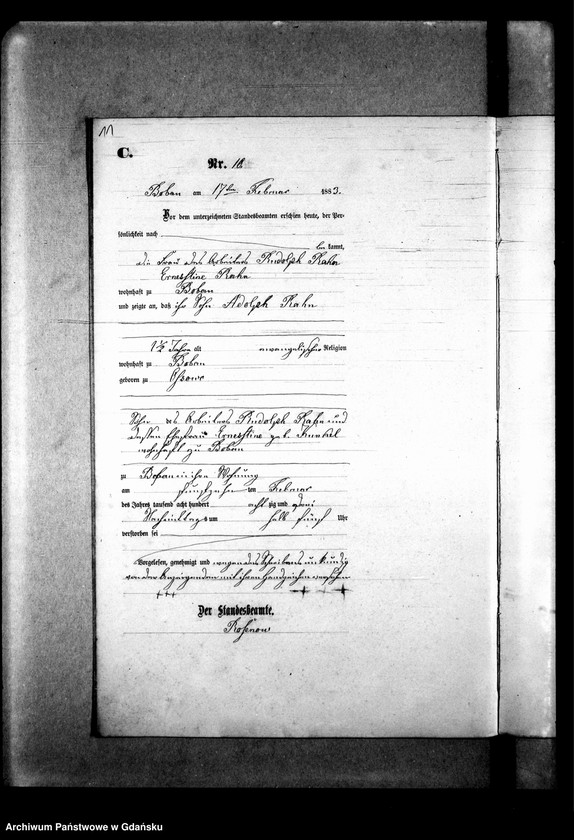 11
C.
Nr. 12.
Boban am 17ten Februar 1883.
Vor dem unterzeichneten Standesbeamten erschien heute, der Per-
sönlichkeit nach
be kannt,
die Frau des Arbeiters Rudolph Rahn
Ernestine Rahn
wohnhaft zu Boban
und zeigte an, daß ihr Sohn Adolph Rahn
1½ Jahre alt evangelischer Religion
wohnhaft zu Boban
geboren zu
Sohn des Arbeiters Rudolph Rahn und
dessen Ehefrau Ernestine geb. Kunkel
wohnhaft zu Boban
zu Boban in ihrer Wohnung
am fünfzehnten Februar
des Jahres tausend acht hundert acht zig und drei
Nachmittags um halb fünf Uhr
verstorben sei
Vorgelesen, genehmigt und wegen des Schreibens unkundig
von der Anzeigenden mit ihrem Handzeichen versehen
+++ +++
Der Standesbeamte.
Rosenow
Archiwum Państwowe w Gdańsku